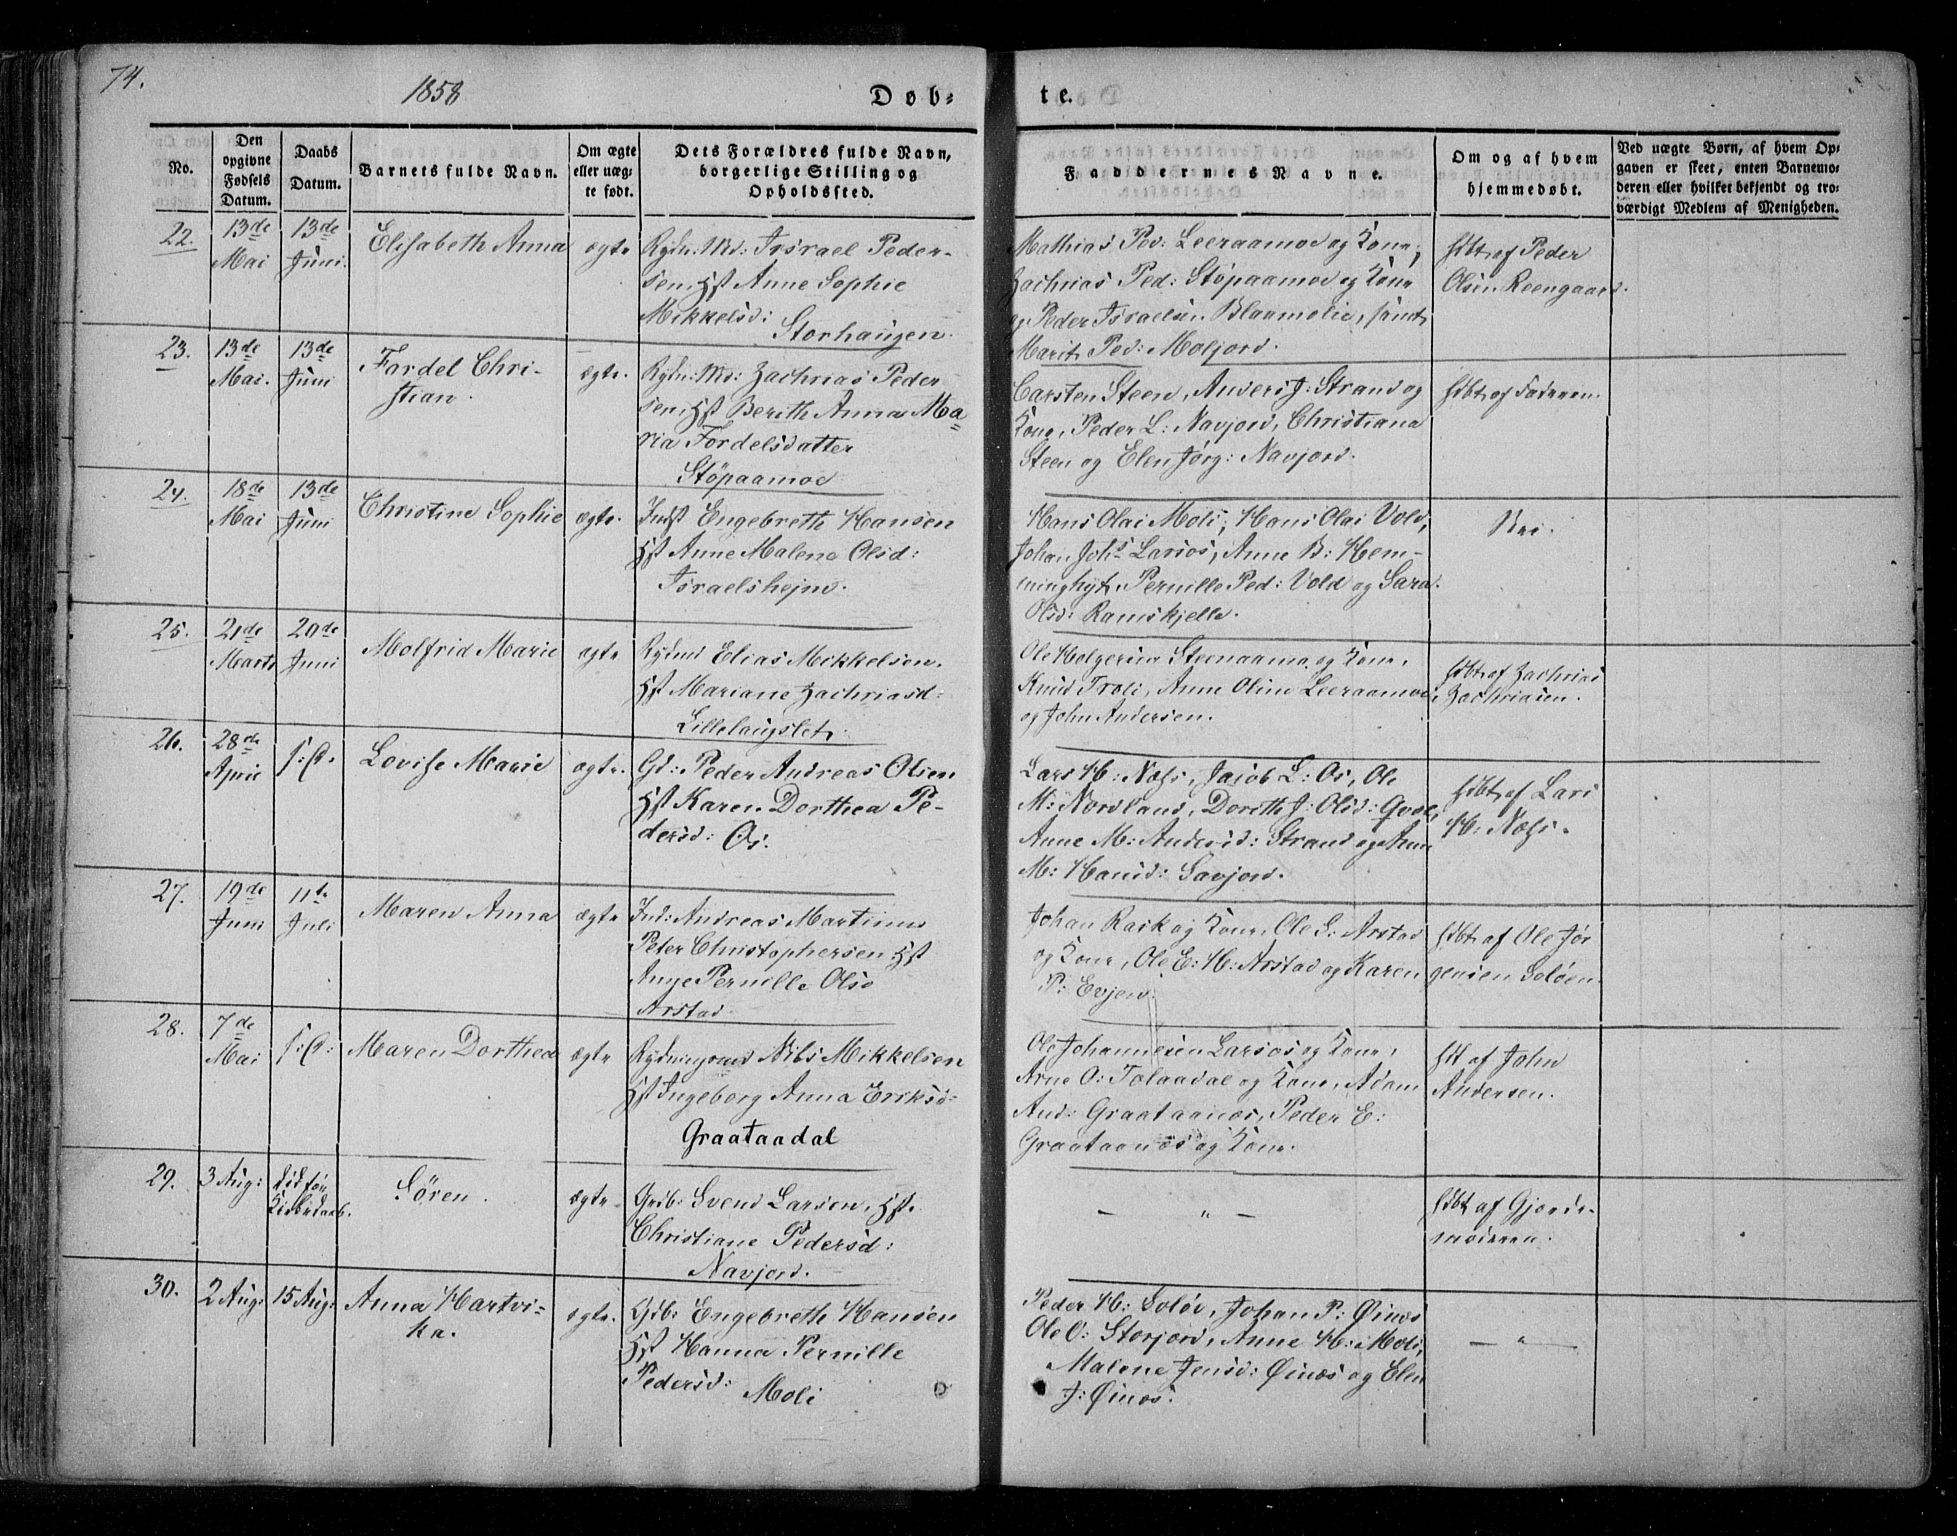 74.
1858
Døb-
te.
No.
Den
opgivne
Fødsels
Datum.
Daabs
Datum.
Barnets fulde Navn.
Om ægte
eller uæg-
te født.
Dets Forældres fulde Navn,
borgerlige Stilling og
Opholdssted.
Faddernes Navne.
Om og af hvem
hjemmedøbt.
Ved uægte Børn, af hvem Op-
gaven er skeet, enten Barnemo-
deren eller hvilket bekjendt og tro-
værdigt Medlem af Menigheden.
22.
13de
Mai
13de
Juni.
Elisabeth Anna
ægte
Rydn: Md: Israel Peder-
sen, Hst Anne Sophie
Mikkelsd:
Storhaugen.
Mathias Ped: Leeraamoe og Kone,
Zachrias Ped: Støpaamoe og Kone
og Peder Israelsen Blaamolie, samt
Marit Ped: Moljord.
Hdbt af Peder
Olsen Reengaard.
23.
13de
Mai.
13de
Juni
Fordel Chri-
stian.
ægte.
Rydn: Md: Zachrias Peder
sen, Hst Berith Anna Ma=
ria Fordelsdatter
Støpaamoe
Carsten Steen, Anders J: Strand og
Kone, Peder L: Navjord, Christiana
Steen og Elen Jørg: Navjord.
Hdbt af Faderen.
24.
18de
Mai
13de
Juni
Christine Sophie
ægte.
Indst Engebreth Hansen
Hst Anne Malene Olsd:
Israelshejm.
Hans Olai Moli, Hans Olai Vold,
Johan Johs Larsos, Anne B: Hem-
minghyt, Pernille Ped: Vold og Sara
Olsd: Ramskjelle.
Nei.
25.
21de
Marts
20de
Juni
Molfrid Marie
ægte
Rydmd Elias Mikkelsen,
Hst Mariane Zachriasd:
Lillelaugslet.
Ole Holgersen Steenaamo og Kone,
Knud Troli, Anne Oline Leeraamoe,
og John Andersen.
Hdbt af Zachrias
Zachriasen.
26.
28de
April
s: D.
Lovise Marie
ægte.
Gd: Peder Andreas Olsen
Hst Karen Dorthea Pe-
dersd: Os.
Lars H: Næss, Jacob L: Os, Ole
M: Nordland, Doreth J: Olsd: Qvæl,
Anne M: Andersd: Strand og Anne
M: Hansd: Savjord.
Hdbt af Lars
H: Næss.
27.
19de
Juni
11te
Juli
Maren Anna
ægte
Ind: Andreas Martinus
Peter Christophersen Hst
Anne Pernille Olsd
Arstad.
Johan Rask og Kone, Ole G: Arstad
og Kone, Ole E: H: Arstad og Karen
P: Evjen.
Hdbt af Ole Jør
gensen Soløen.
28.
7de
Mai
s: D:
Maren Dorthea
ægte
Rydningsmd Nils Mikkelsen
Hst Ingeborg Anna Eriksd-
Graataadal
Ole Johannesen Larsos og Kone,
Arne O: Tolaadal og Kone, Adam
And: Graataanæs, Peder E:
Graataanæs og Kone.
Hdt af John
Andersen.
29.
3 Aug:
Død før
Kirkedaab.
Sören.
ægte
Grb: Svend Larsen, Hst.
Christiane Pedersd:
Navjord.
— " —
Hdbt af Gjorde-
moderen.
30.
2 Aug:
15 Aug:
Anna Hartvi-
ka.
ægte.
Gdb: Engebreth Hansen
Hst Hanna Pernille
Pedersd:
Moli
Peder H: Soløe, Johan P: Øines
Ole O: Storjord, Anne H: Moli,
Malene Jensd: Øinæs og Elen
J: Øinæs.
— " —